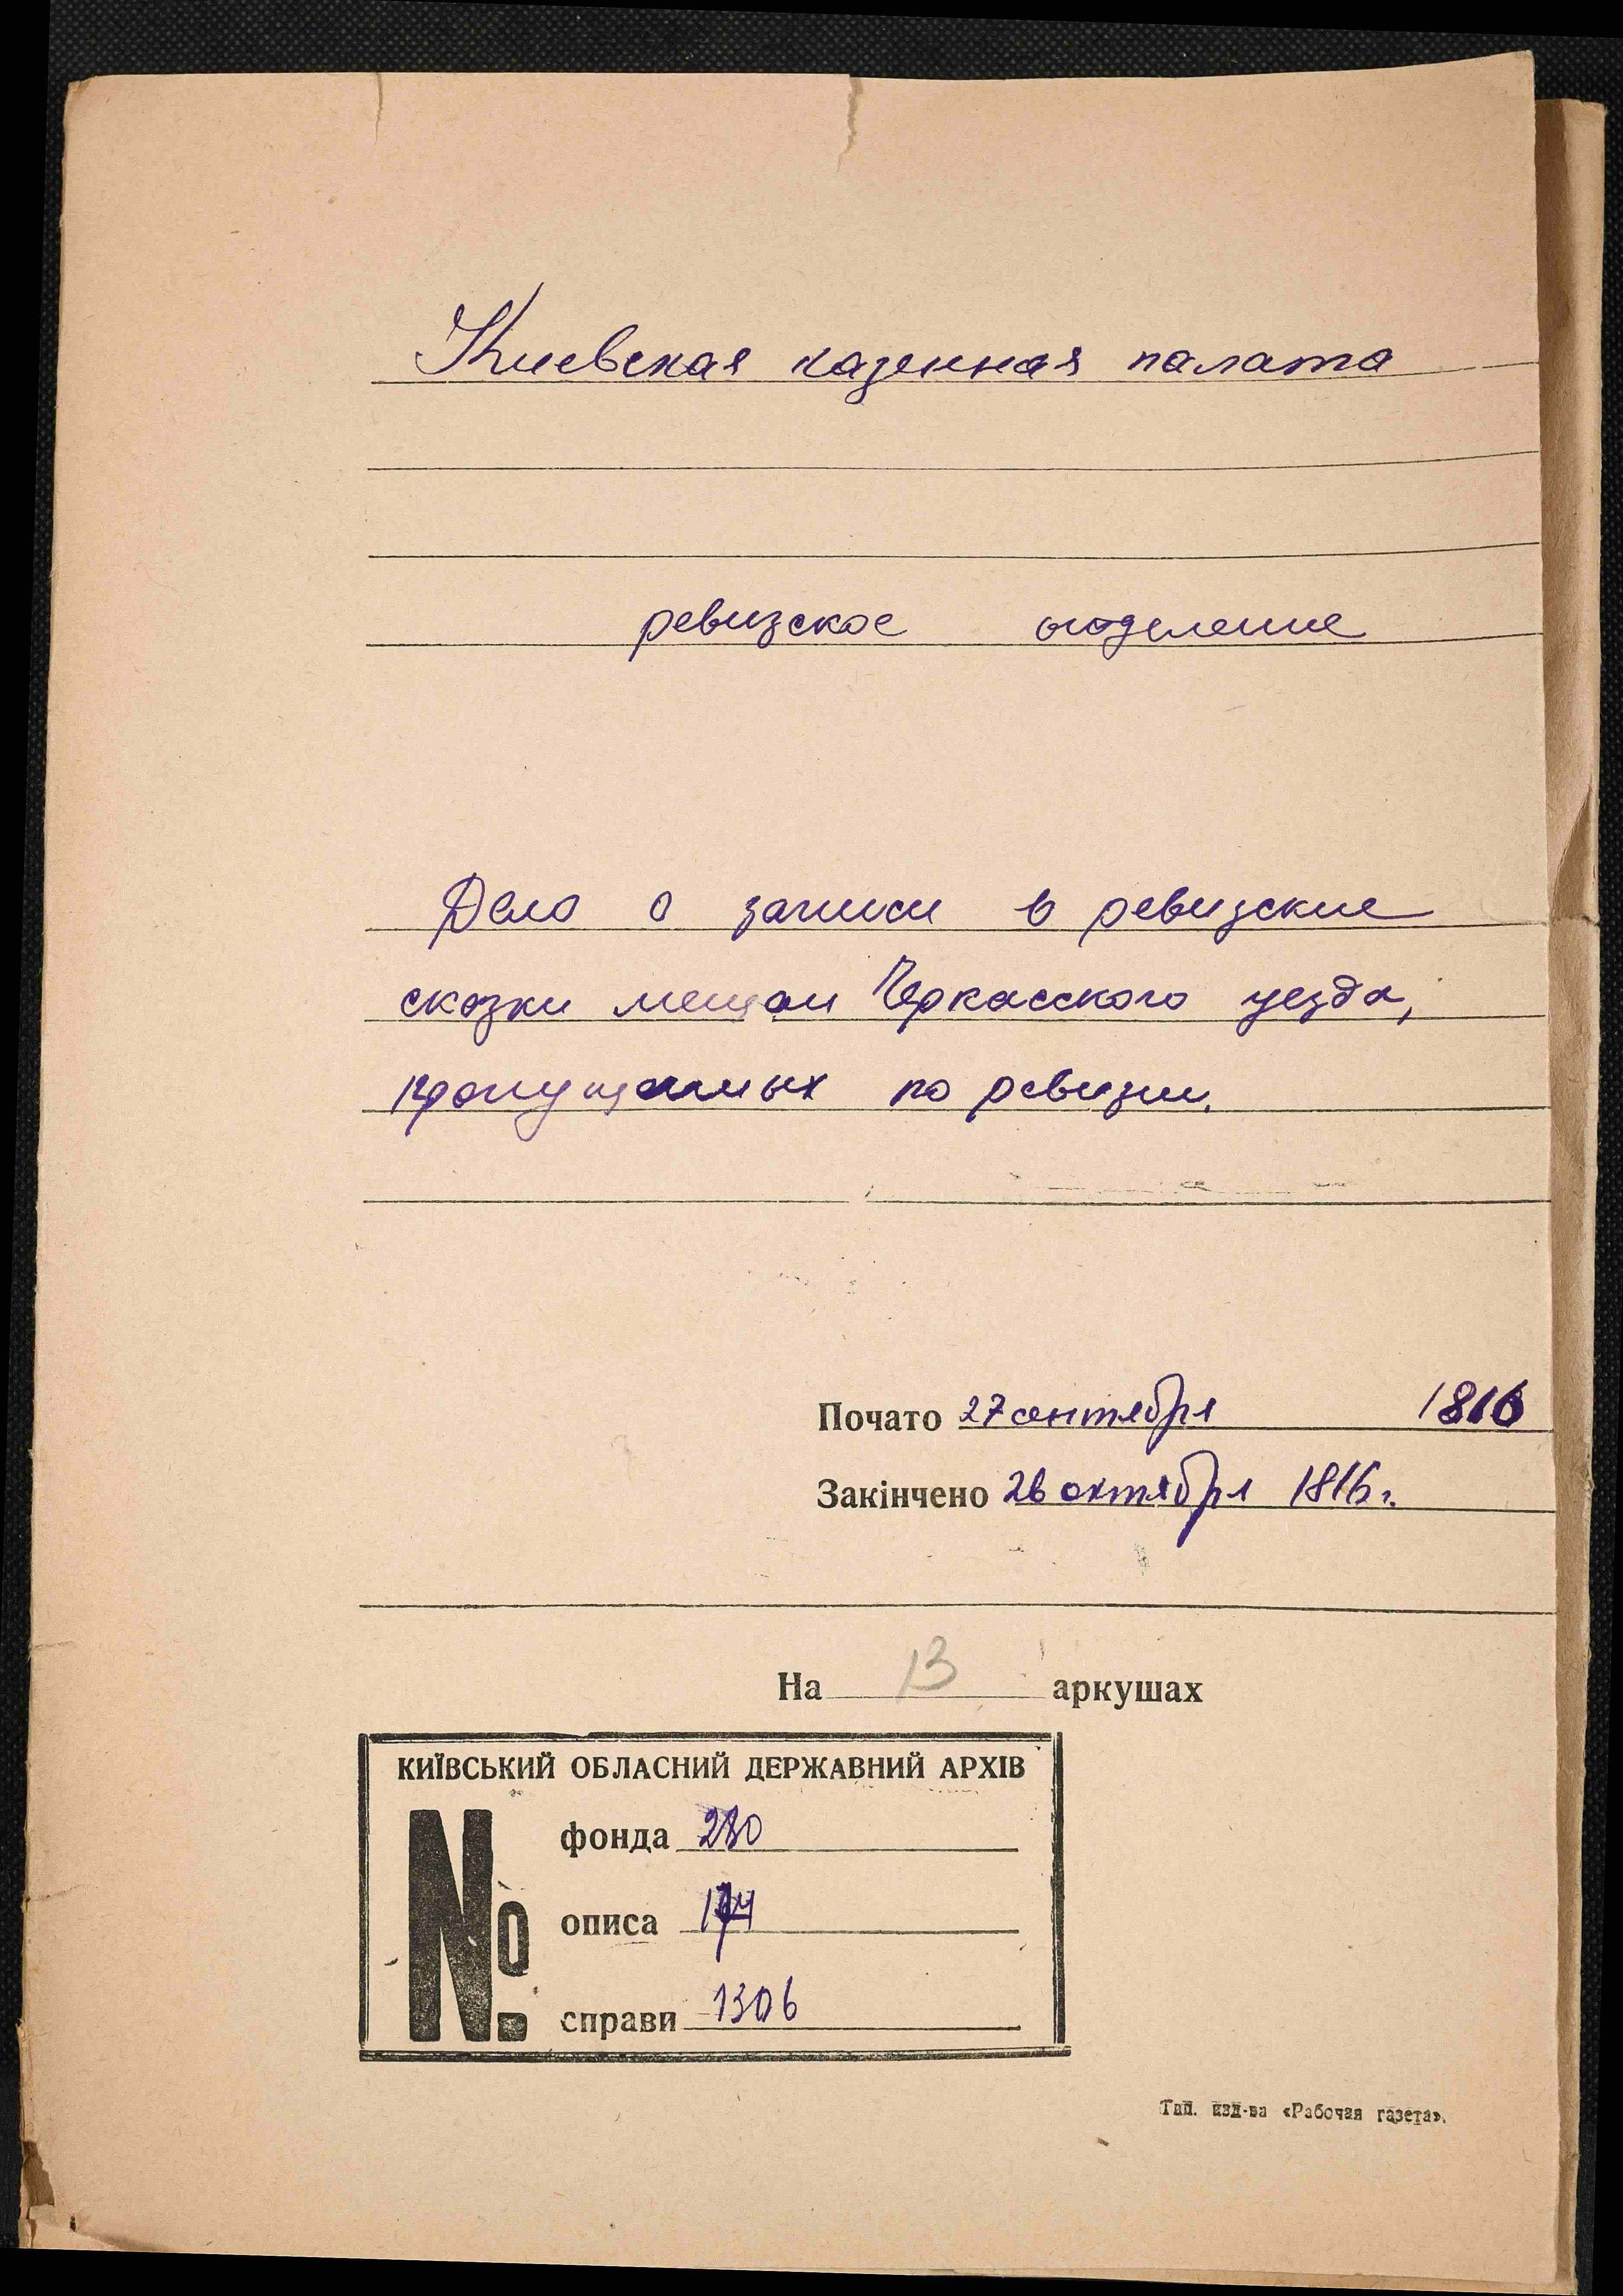 Киевская казенная палата
ревизское отделение
Дело о записи в ревизские
сказки мещан Черкасского уезда,
пропущенных по ревизии.
Почато 27 сентября 1816
Закінчено 26 октября 1816 г.
На 13 аркушах
КИЇВСЬКИЙ ОБЛАСНИЙ ДЕРЖАВНИЙ АРХІВ
№
фонда 280
описа 174
справи 1306
Тип. изд-ва «Рабочая газета».